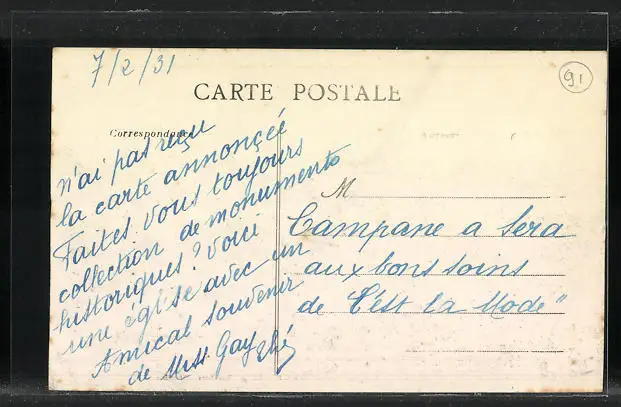 7/2/31
91
CARTE POSTALE
Correspondance
n'ai pas reçu
la carte annoncée
Faites vous toujours
collection de monuments
historiques? voici
une église avec un
Amical souvenir
de
M
Campane a Sera
aux bons soins
de "C'est la Mode"